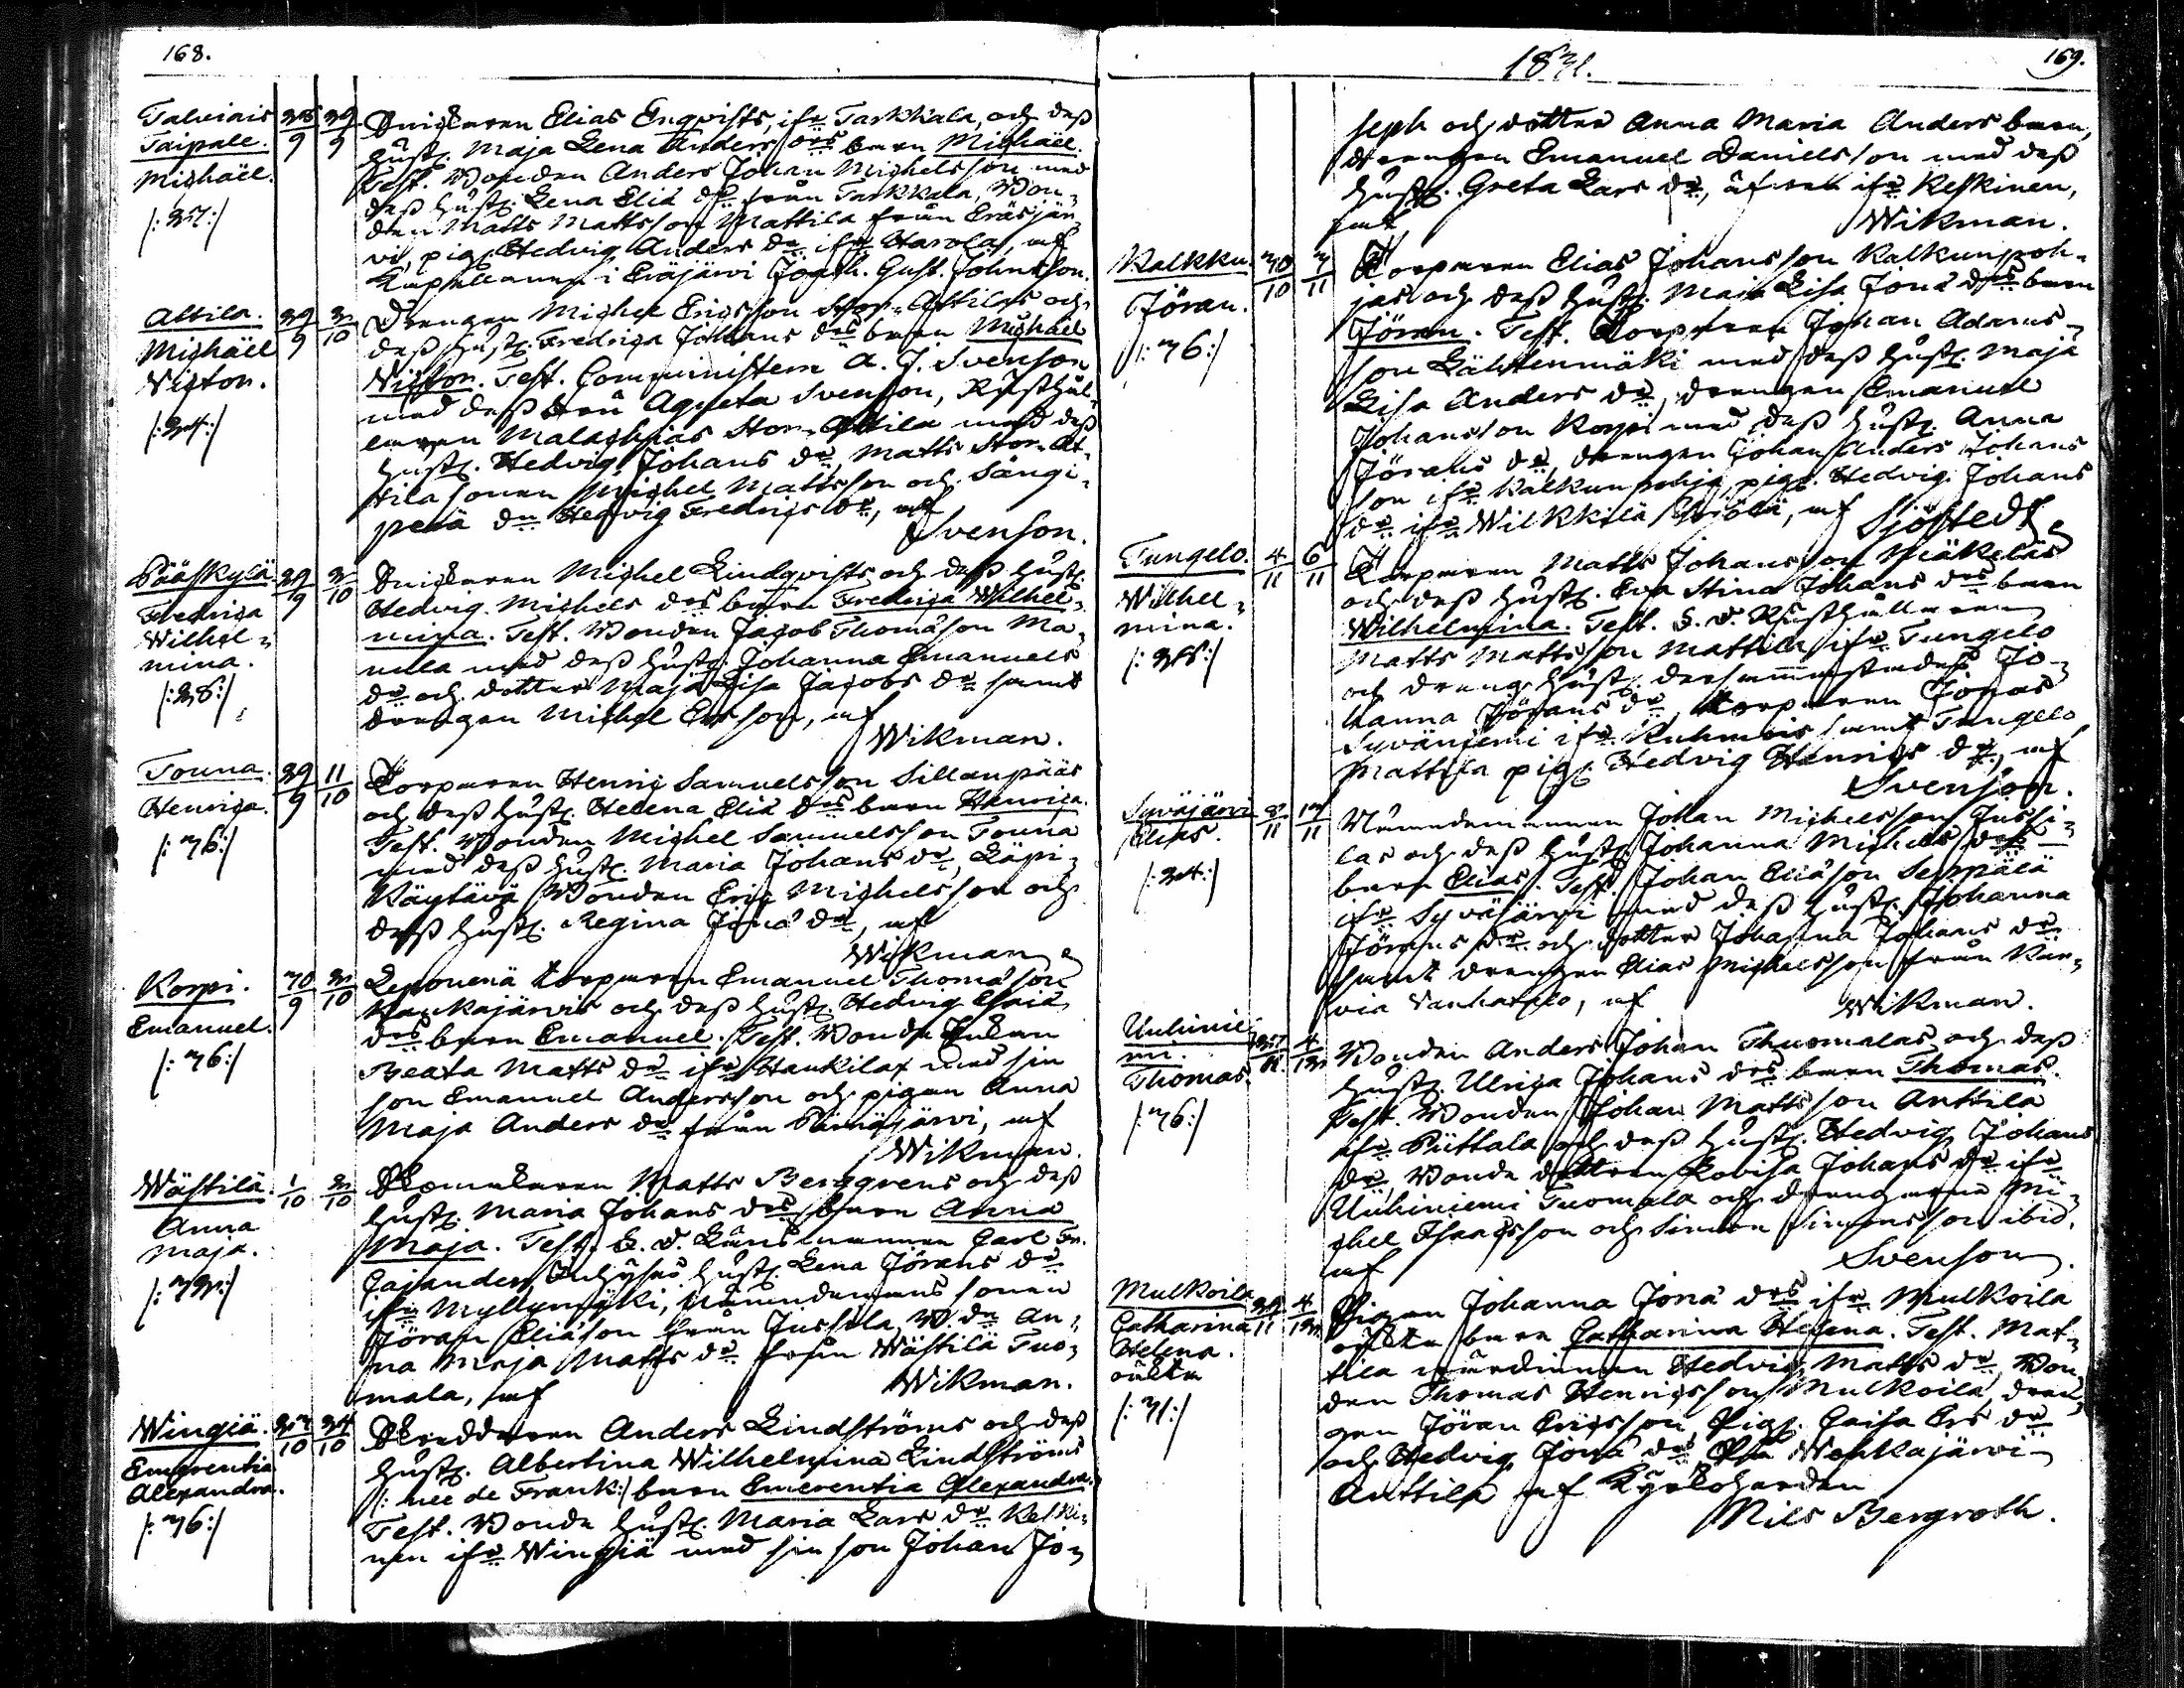 168.
Talviais
Taipale.
Michäel.
Snickaren Elias Enqvists, ifr. Tarkkala, och dess
hustr. Maja Lena Anders drs barn Michäel.
Test. Bonden Anders Johan Michelsson med
dess hustr. Lena Eliæ dr från Tarkkala, Bon-
den Matts Mattsson Mattila från Eräjär-
vi, pig. Hedvig Anders dr ifr. Harola, af
Kapellanen i Eräjärvi Gust. Johnsson.
Attila.
Michäel
Victor.
Drengen Michel Ericsson Stor-Attilas och
dess hustr. Fredrica Johans drs barn Michäel
Victor. Test. Comministern A. J. Svenson
med dess Fru Agneta Svenson, Rusthål-
laren Malachias Stor-Attila med dess
hustr. Hedvig Johans dr, Matts Stor-At-
tila sonen Michel Mattsson och Sängi-
perä dr Hedvig Fredrics dr, af
Svenson.
Pääskylä
Fredrica
Wilhel-
mina.
/:28:/
Snickaren Michel Lindqvists och dess hustr.
Hedvig Michels drs barn Fredrica Wilhel-
mina. Test. Bonden Jacob Thomasson Ma-
nilla med dess hustr. Johanna Emanuels
dr och dotter Maja Lisa Jacobs dr samt
drengen Michel Ersson, af
Wikman.
Touna.
Henrica.
/:36:/
29/9 11/10
Torparen Henric Samuelsson Sillanpääs
och dess hustr. Helena Eliæ drs barn Henrica.
Test. Bonden Michel Samuelsson Touna
med dess hustr. Maria Johans dr, Läpi-
käytävä Bonden Eric Michelsson och
dess hustr. Regina Jonæ dr, af
Wikman
Korpi.
Emanuel.
/:36:/
30/9
Torparen Emanuel Thomasson
Haukajärvis och dess hustr. Hedvig Esaiæ
drs barn Emanuel. Test. Bonde Enkan
Beata Matts dr ifr. Haukila med sin
son Emanuel Andersson och pigan Anna
Maja Anders dr från Pitkäjärvi, af
Wikman.
Wästilä.
Anna
Maja.
1/10
Matts Berggrens och dess
hustr. Maria Johans drs barn Anna
Maja. Test. S. v. Länsmannen Carl Fr.
Cajanders hustr. Lena Jörans dr
ifr. Myllymäki, Nämndemans sonen
Jöran Eliæson från Jussila, B. dr An-
na Maja Matts dr från Wästilä Tuo-
mala, af
Wikman.
Wingiä.
Emerentia
Alexandra.
/:36:/
Skreddaren Anders Lindströms och dess
hustr. Albertina Wilhelmina Lindströms
/: née de Frank:/ barn Emerentia Alexandra.
Test. Bonde hustr. Maria Lars dr Keski-
nen ifr. Wingiä med sin son Johan Jo-
1831.
169.
seph och dotter Anna Maria Anders barn,
drengen Emanuel Danielsson med dess
hustr. Greta Lars dr, ifr. Keskinen,
af
Wikman.
Kalkku.
Jöran.
/:36:/
30/10 3/11
Torparen Elias Johansson Kalkunpoh-
jas och dess hustr. Maja Lisa Jonæ drs barn
Jöran. Test. Torparen Johan Adams-
son Lähtenmäki med dess hustr. Maja
Lisa Anders dr, drengen Emanuel
Johansson Korpi med dess hustr. Anna
Jörans dr, drengen Johan Anders Johans
son ifr. Kalkunpohja, pig. Hedvig Johans
dr ifr. Wilkkilä Yrjölä, af Sjöstedt
Tungelo.
Wilhel-
mina.
4/11 6/11
Torparen Matts Johansson Mäkeläs
och dess hustr. Eva Stina Johans drs barn
Wilhelmina. Test. S. v. Rusthållaren
Matts Mattsson Mattila ifr. Tungelo
och dreng hustr. dersammastedes Jo-
hanna Jörans dr, Torparen Jonas
Syväniemi ifr. Kuhmois samt Tungelo
Mattila pig. Hedvig Henrics dr, af
Svenson.
Syväjärvi
Elias.
8/11 13/11
Nämndemannen Johan Michelsson Jussi-
las och dess hustr. Johanna Michels drs
barn Elias. Test. Johan Eliæson Seppälä
ifr. Syväjärvi med dess hustr. Johanna
Jörans dr och dotter Johanna Johans dr
samt drengen Elias Michelsson från Kar-
via Vanhatalo, af
Wikman.
Uuhinie-
mi.
Thomas.
/:36:/
Bonden Anders Johan Thuomalas och dess
hustr. Ulrica Johans drs barn Thomas.
Test. Bonden Johan Mattsson Anttila
ifr. Puttala och dess hustr. Hedvig Johans
dr, Bonde dottren Lovisa Johans dr ifr.
Uuhiniemi Tuomala och drengarne Mi-
chel Isaacsson och Simon Simonsson ibid.
af
Svenson.
Mulkoila
Catharina
Helena.
oäkta
/:31:/
Pigan Johanna Jonæ drs ifr. Mulkoila
oäkta barn Catharina Helena. Test. Mat-
tila värdinnan Hedvig Matts dr, Bon-
den Thomas Henricsson Mulkoila, dren-
gen Jöran Ericsson, Pig. Caisa Ers dr
och Hedvig Jonæ dr från Wehkajärvi
Anttila af Kyrkoherden
Nils Bergroth.